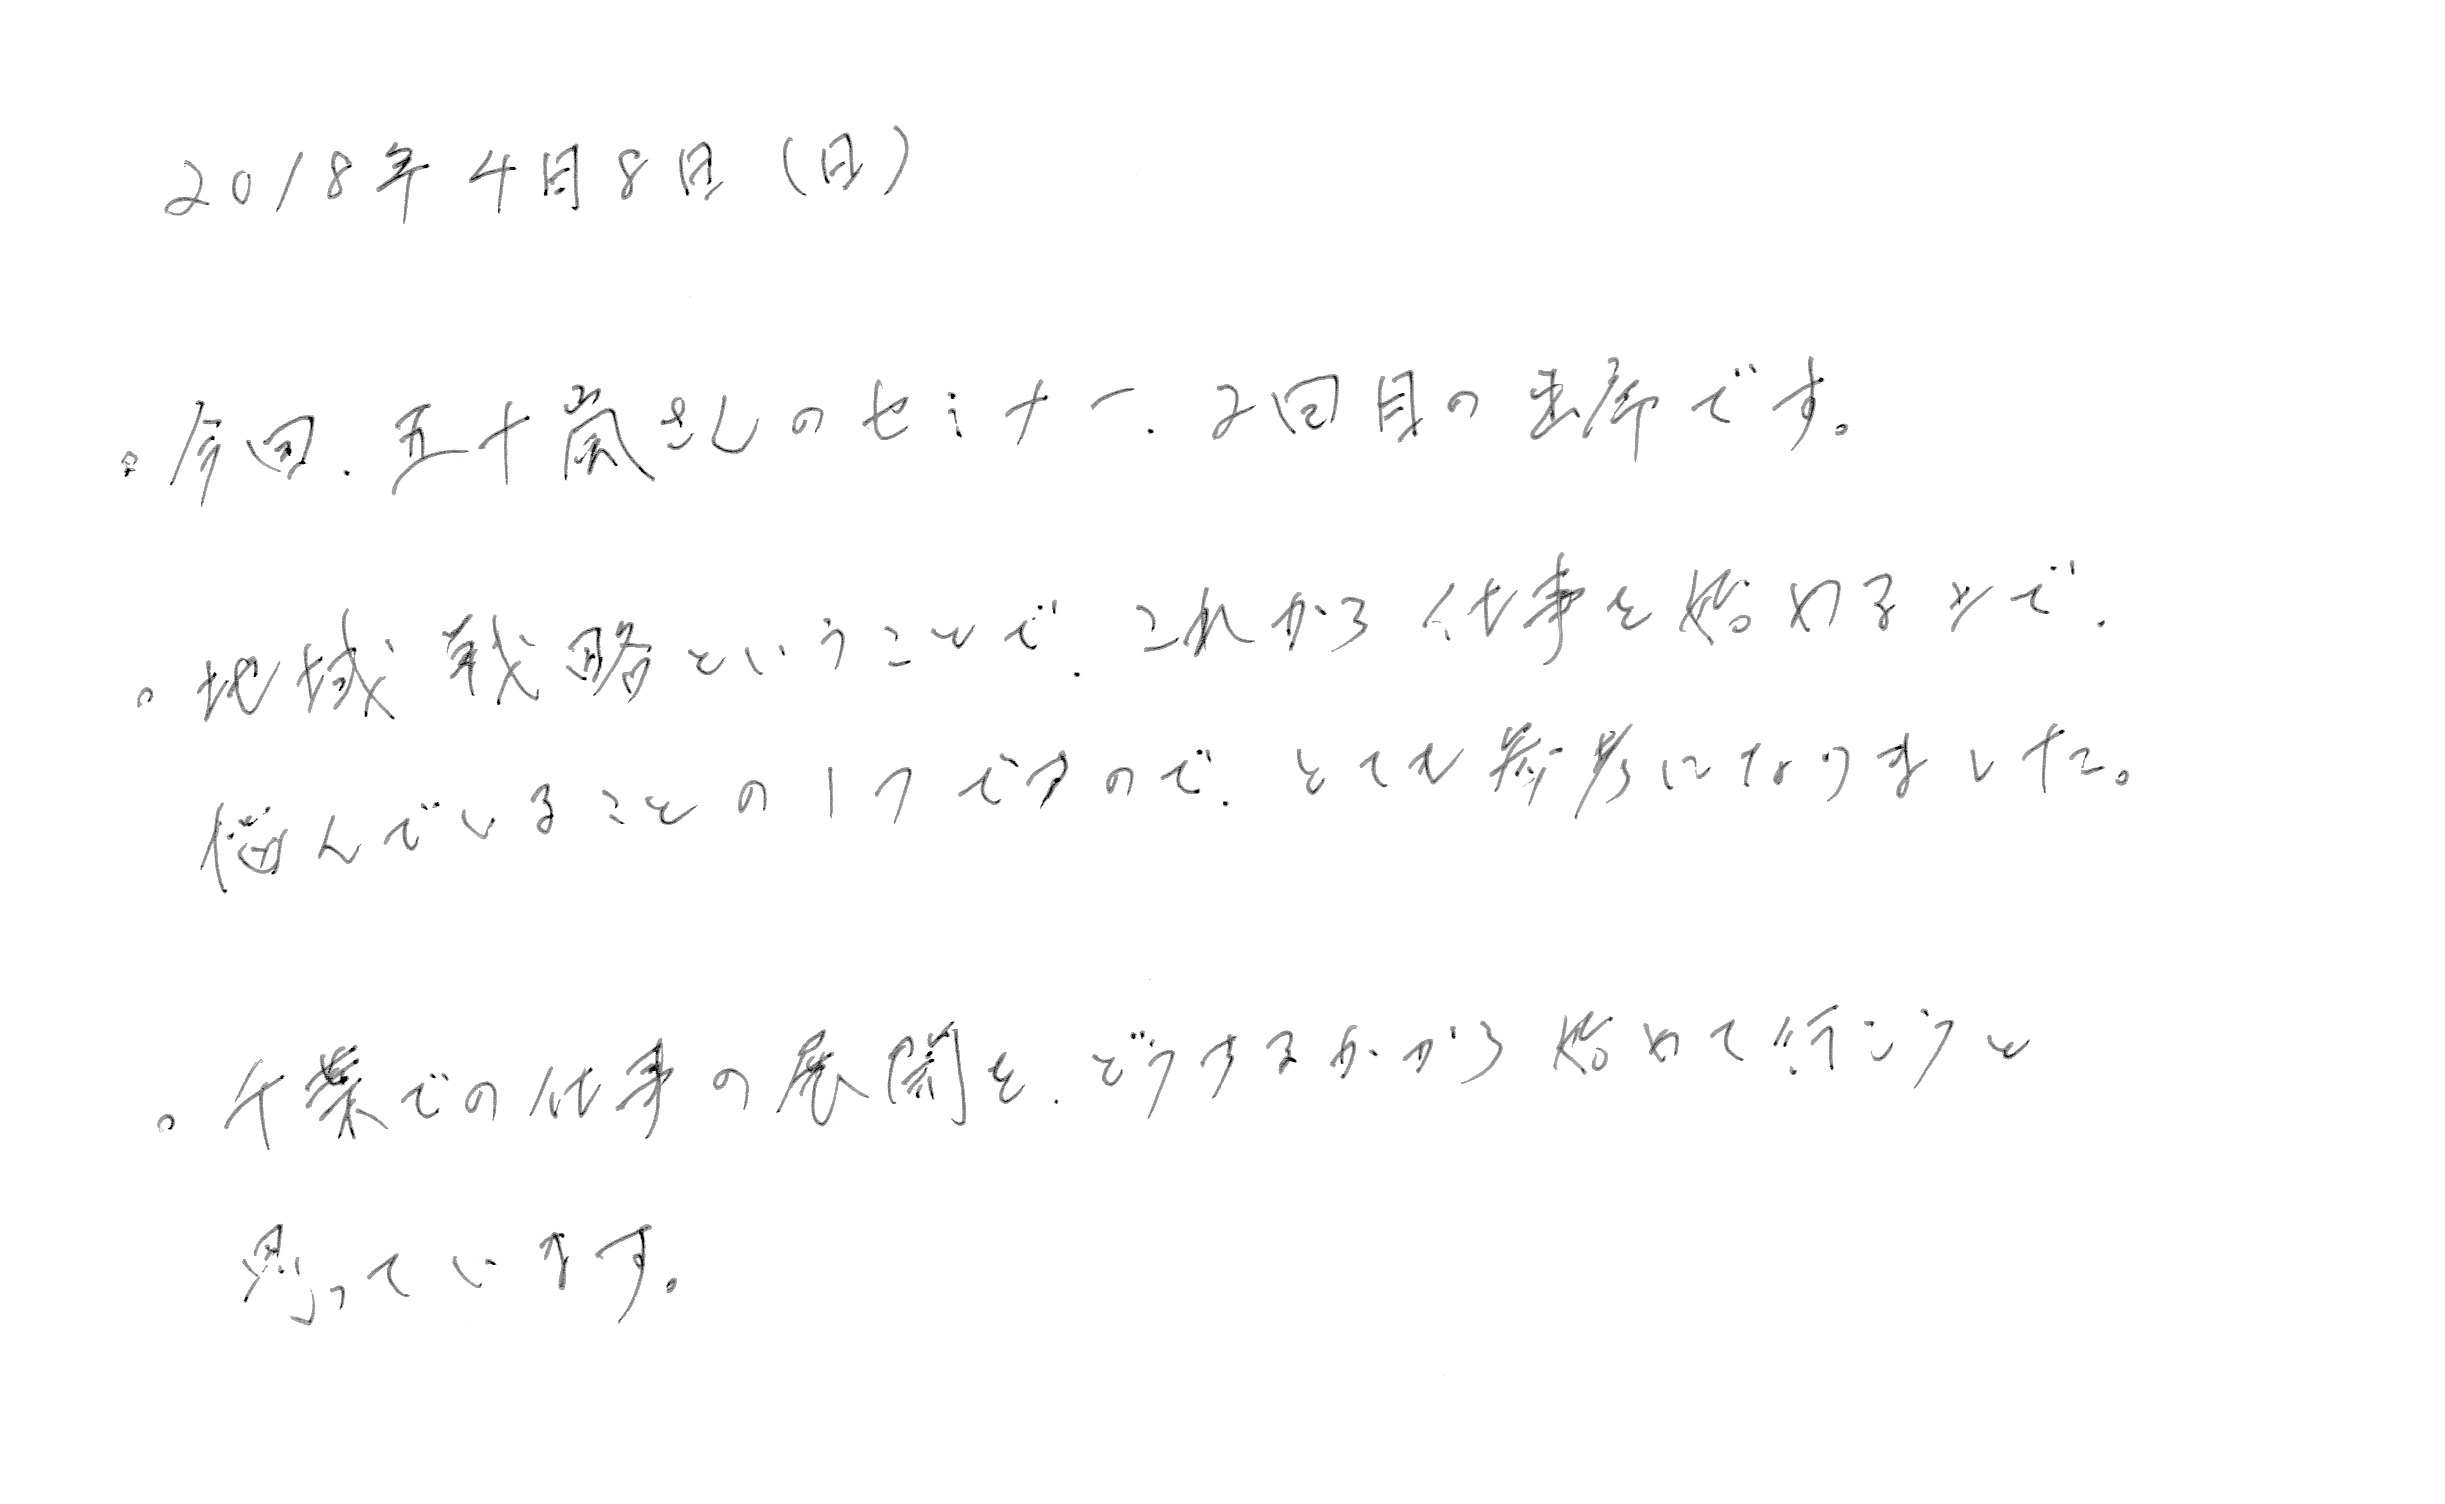 2018年4月8日(日)
。今回、五十嵐さんのセミナー、2回目の出席です。
。地域戦略ということで、これから仕事を始める で、
悩んでいることの1つですので、とても参考になりました。
。 での仕事の展開を、どうするかから始めて行こうと
思っています。